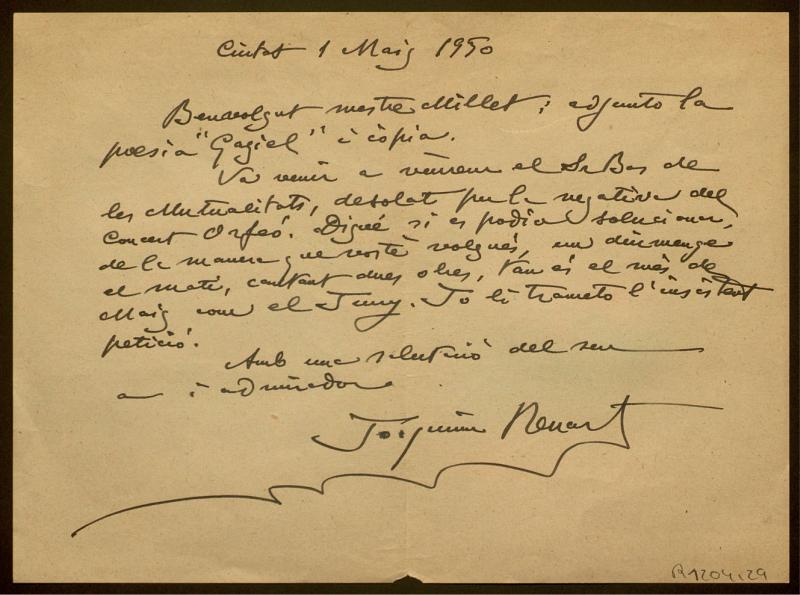 Ciutat 1 Maig 1950
Benvolgut mestre Millet; adjunto la
poesia "Gaziel" i còpia.
Va venir a veure'm el Sr Bas de
les Mutualitats, desolat per la negativa del
Concert Orfeó. Digué si es podia solucionar,
de la manera que vostè volgués, un diumenge
el matí, cantant dues obres, tan és el més de
Maig com el Juny. Jo li trameto l'insistent
petició.
Amb una salutació del seu
a i admirador
Joaquim Renart
R1204.29